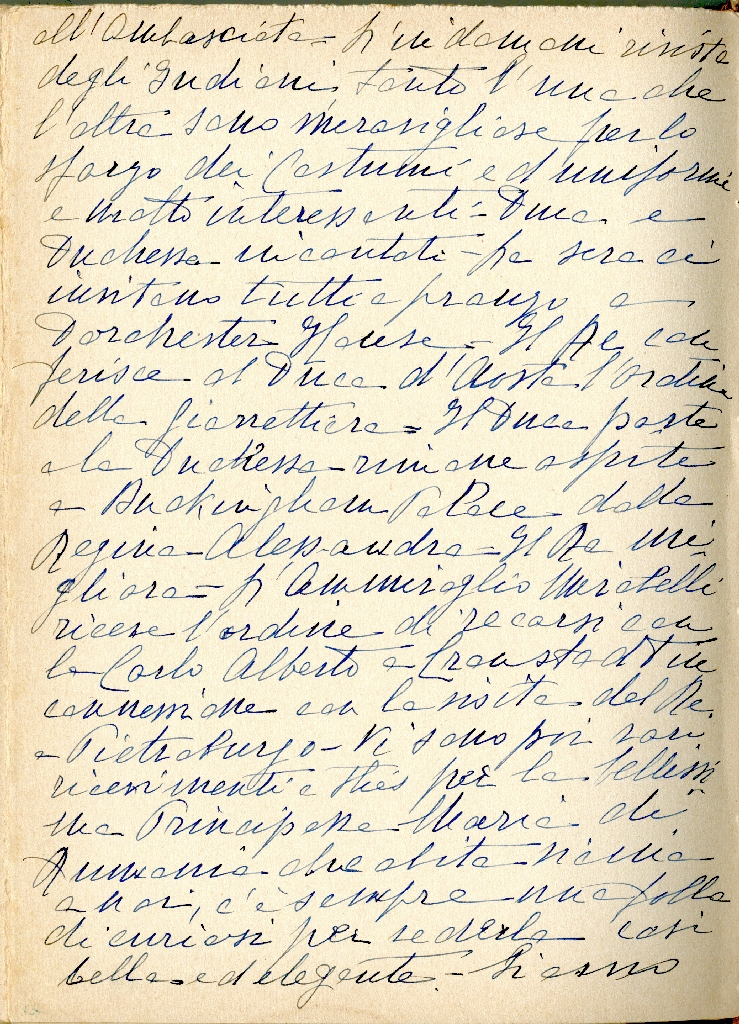 all'Ambasciata = L'indomani rivista
degli Indiani tanto l'una che
l'altra sono meravigliose per lo
sfarzo dei Costumi ed uniformi
e molto interessanti = Duca e
Duchessa incantati = La sera ci
invitano tutti a pranzo a
Dorchester House = Il Re con
ferisce al Duca d'Aosta l'ordine
della Giarrettiera = Il Duca parte
e la Duchessa rimane ospite
a Buckingham Palace della
Regina Alessandra = Il Re mi-
gliora = L'Ammiraglio Mirabelli
riceve l'ordine di recarsi con
la Carlo Alberto a Cronstadt in
connessione con la visita del Re
a Pietroburgo = Vi sono poi vari
ricevimenti e thés per la bellissi
ma Principessa Maria di
Rumania che abita vicina
a noi, c'è sempre una folla
di curiosi per vederla così
bella ed elegante =